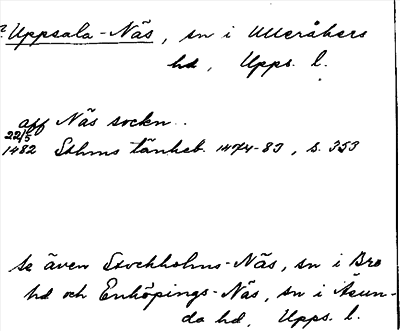 ? Uppsala-Näs, sn i Ulleråkers
hd, Upps. l.
aff Näs sockn..
22/5
1482 Sthms tänkeb. 1474-83, s. 353
se även Stockholms-Näs, sn i Bro
hd och Enköpings-Näs, sn i Åsun-
da hd, Upps. l.